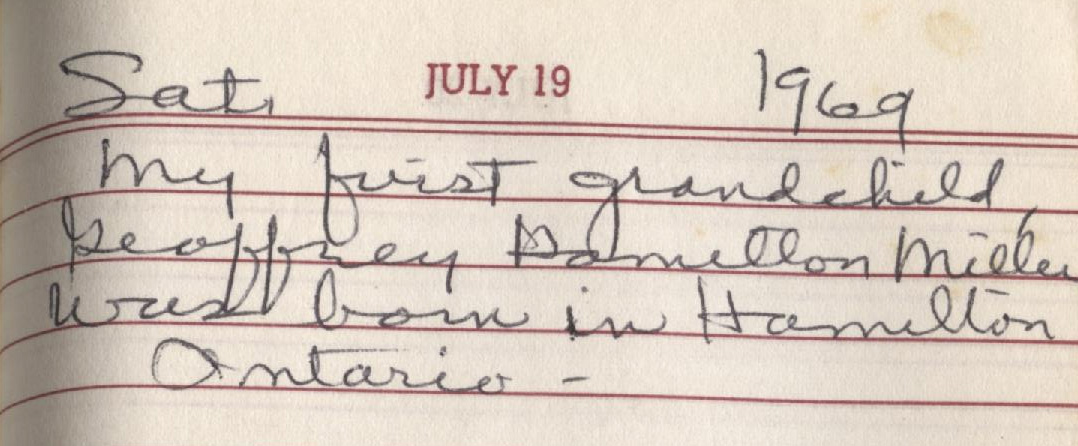 Sat. JULY 19 1969
My first grandchild,
Geoffrey Hamilton Miller
was born in Hamilton
Ontario -